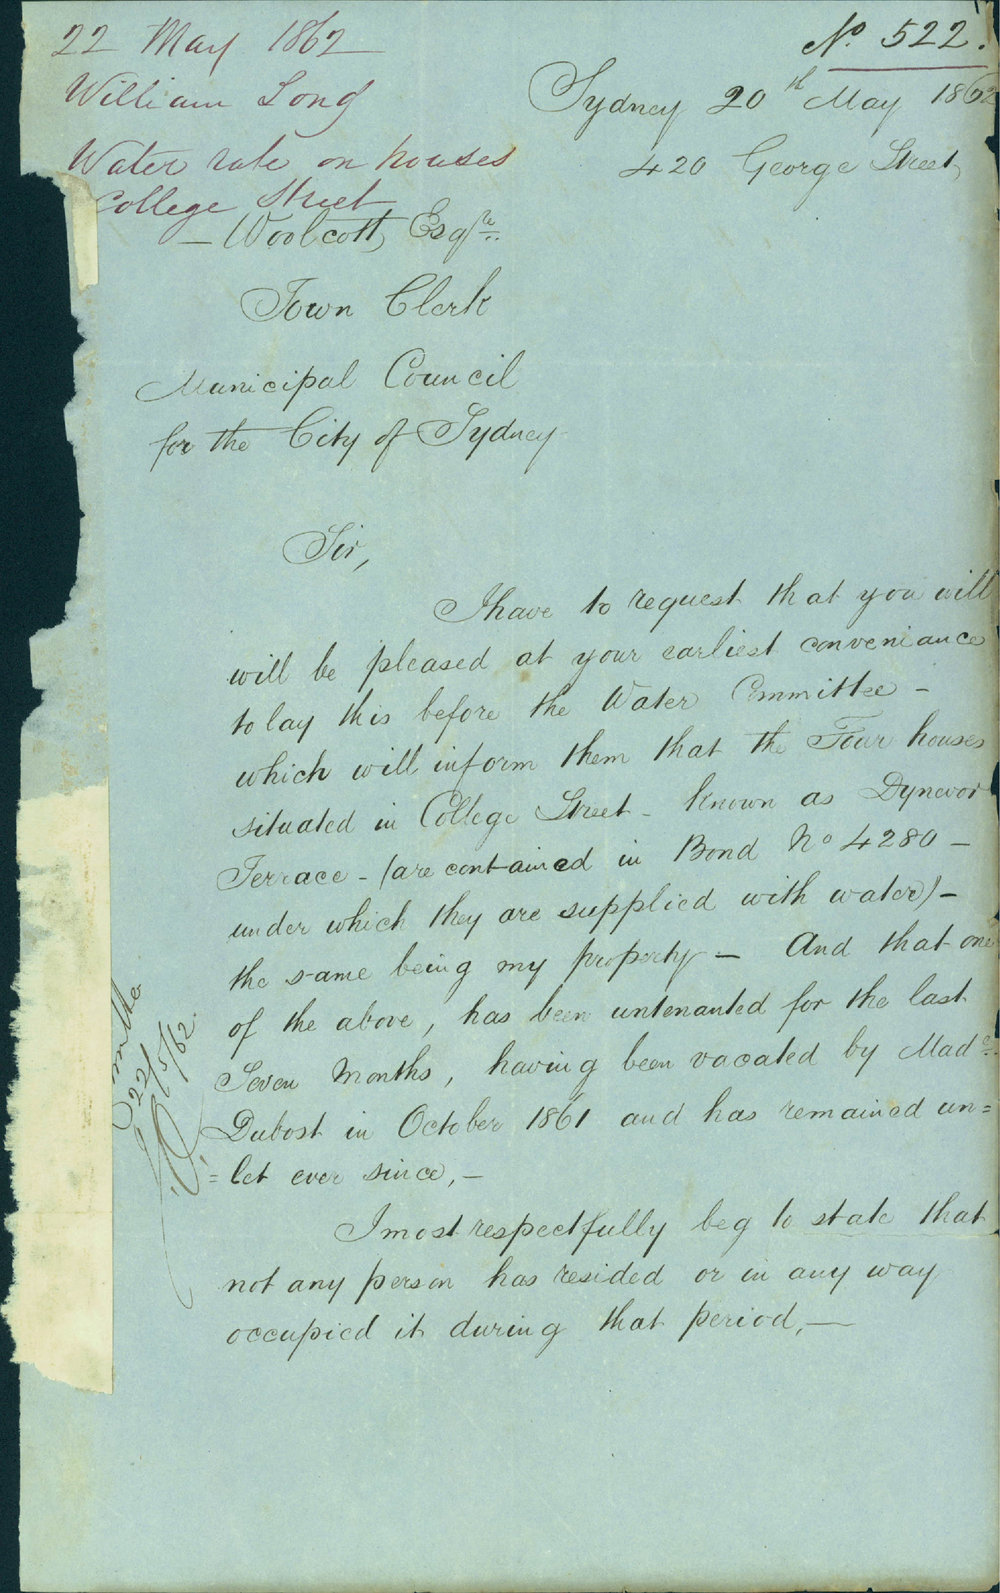 22 May 1862
William Long
Water rate on houses
College Street
No. 522.
Sydney 20th May 1862
420 George Street
— Woolcott, Esqre.
Town Clerk
Municipal Council
for the City of Sydney
Sir,
I have to request that you will
will be pleased at your earliest conveniance
to lay this before the Water Committee —
which will inform them that the Four houses
situated in College Street - known as Dynevor
Terrace - (are contained in Bond No 4280 —
under which they are supplied with water) —
the same being my property — And that one
of the above, has been untenanted for the last
Seven Months, having been vacated by Made
Dubost in October 1861 and has remained un=
=let ever since, —
I most respectfully beg to state that
not any person has resided or in any way
occupied it during that period, —
22/5/62